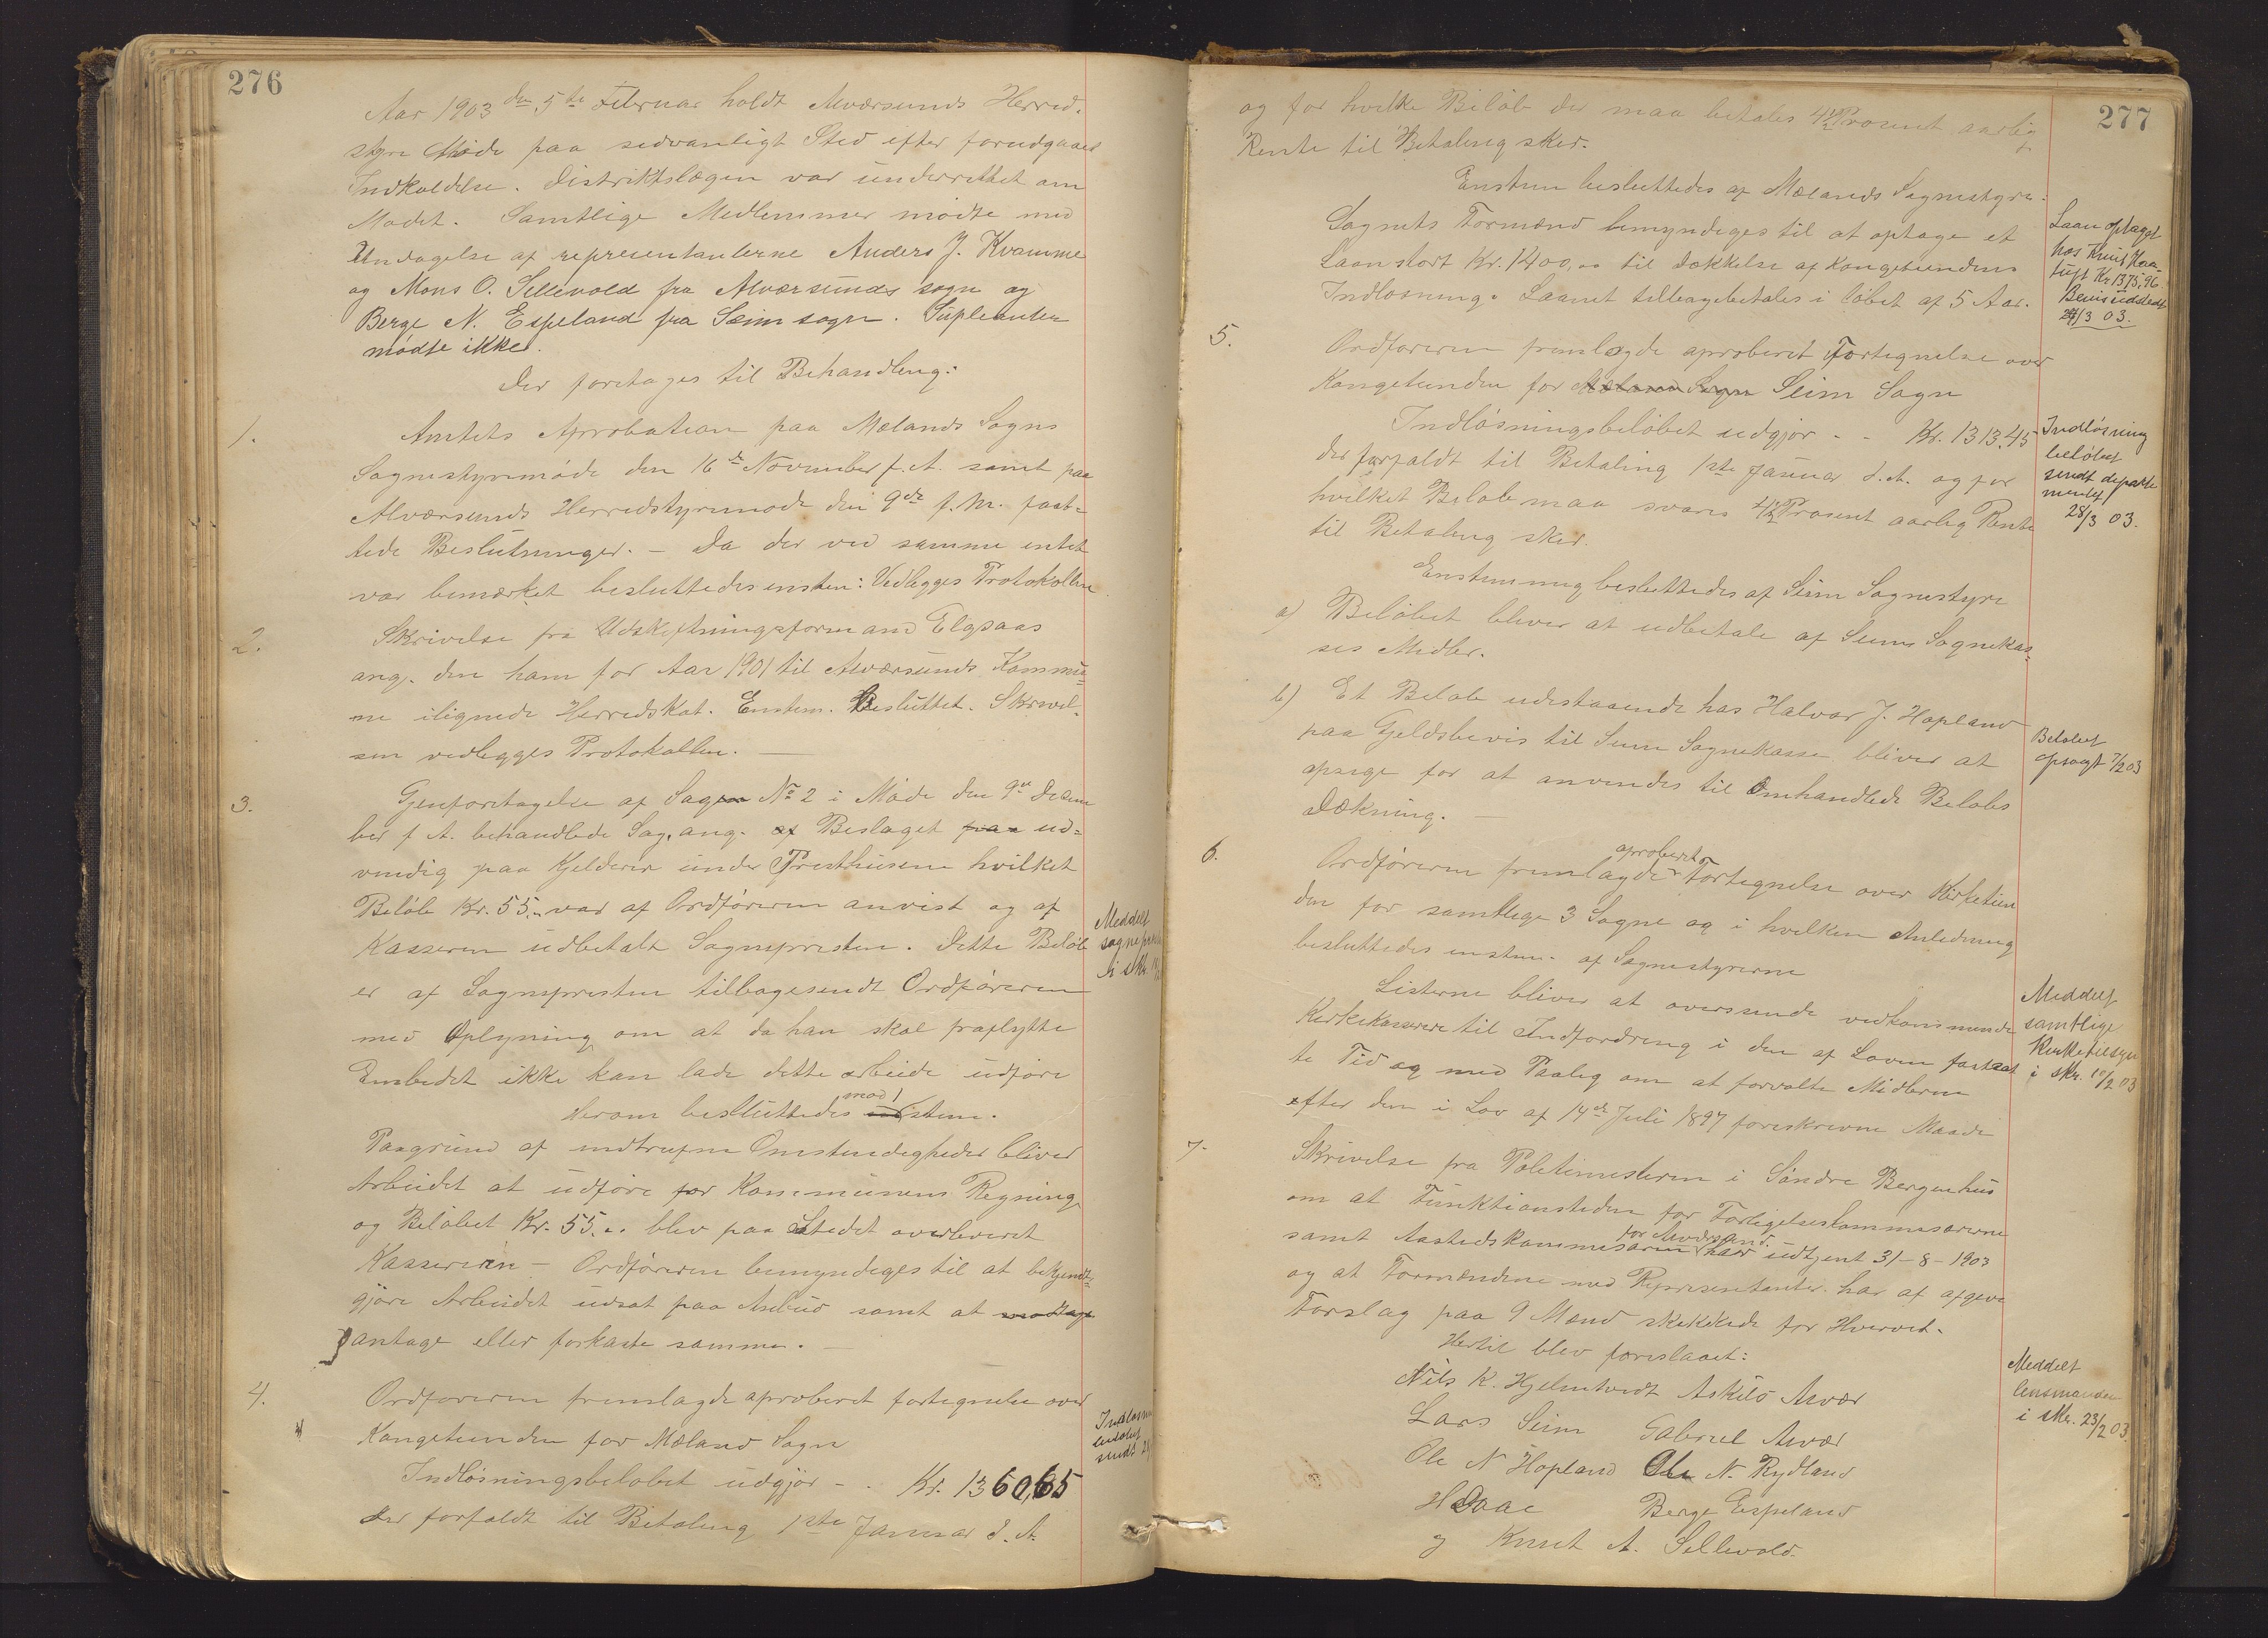 276
Aar 1903 den 5te Februar holdt Alværsunds Herred-
styre Møde paa sedvanligt Sted efter forudgaaed
Indkaldelse. Distriktslægen var underrettet om
Mødet. Samtlige Medlemmer mødte med
Undtagelse af representanterne Anders J. Kvamme
og Mons O. Sellevold fra Alværsunds sogn og
Berge N. Espeland fra Seim sogn. Supleanter
mødte ikke.
Der foretages til Behandling:
1. Amtets Aprobation paa Mælands Sogns
Sognestyremøde den 16de November f. A. samt paa
Alværsunds Herredstyremøde den 9de f. M. fast-
tede Beslutninger. – Da der ved samme intet
var bemærket besluttedes enstem: Vedlegges Protokollen
2. Skrivelse fra Udskiftningsformand Elgsaas
ang. den ham for Aar 1901 til Alværsunds Kommu-
ne ilignede Herredskat. Enstem. Besluttet. Skrivel-
sen vedlegges Protokollen. —
3. Gjenforetagelse af Sagen No 2 i Møde den 9de Decem
ber f A. behandlede Sag, ang. af Beslaget paa ud-
vendig paa Kjelderen under Presthusene hvilket
Beløb Kr. 55,- var af Ordføreren anvist og af
Kassereren udbetalt Sognepresten. Dette Beløb
er af Sognepresten tilbagesendt Ordføreren
med Oplysning om at da han skal fraflytte
Embedet ikke kan lade dette arbeide udføre
Meddelt
i skr.
Herom besluttedes mod 1 stem.
Paagrund af indtrufne Omstendigheder bliver
Arbeidet at udføre for Kommunens Regning
og Beløbet Kr. 55.,, blev paa Stedet overleveret
Kassereren – Ordføreren bemyndiges til at bekjendt-
gjøre Arbeidet udsat paa Anbud samt at modtage
antage eller forkaste samme. —
4. Ordføreren fremlagde aproberet fortegnelse over
Kongetienden for Mæland Sogn
Indløsningsbeløbet udgjør - . Kr. 1360,65
der forfaldt til Betaling 1ste Januar d. A.
sendt
277
og for hvilke Beløb der maa betales 4½ Prosent aarlig
Rente til Betaling sker.
Enstem besluttedes af Mælands Sognestyre.
Sognets Formænd bemyndiges til at optage et
Laan stort Kr. 1400,00 til Dækkelse af Kongetiendens
Indløsning. Laanet tilbagebetales i løbet af 5 Aar.
Laan optaget
hos Knut
Kr 1375,96
Bevis uddedt
24/3 03.
5. Ordføreren fremlagde aproberet Fortegnelse over
Kongetienden for Mæland Sogn Seim Sogn
Indløsningsbeløbet udgjør - - Kr. 1313,45
der forfaldt til Betaling 1ste Januar d. A. og for
hvilket Beløb maa svares 4½ Prosent aarlig Rente
til Betaling sker.
Indløsning
beløbet
sendt departe
mentet
28/3 03.
Enstemmig besluttedes af Seim Sognestyre
a) Beløbet bliver at udbetale af Seims Sognekas-
ses Midler.
b) Et Beløb udestaaende hos Halvor J. Hopland
paa Gjeldsbevis til Seim Sognekasse bliver at
opsige for at anvendes til Omhandlede Beløbs
Dækning. —
Beløbet
opsagt 7/2 03
6. Ordføreren fremlagde aproberet Fortegnelse over Kirketien
den for samtlige 3 Sogne og i hvilken Anledning
besluttedes enstem. af Sognestyrerne
Listerne bliver at oversende vedkommende
Kirkekasserere til Indfordring i den af Loven fastsat
te Tid og med Paalæg om at forvalte Midlerne
efter den i Lov af 14de Juli 1897 foreskrevne Maade
Meddelt
samtlige
Kirketilsyn
i skr. 10/2 03
7. Skrivelse fra Politimesteren i Søndre Bergenhus
om at Funktionstiden for Forligelseskommisærerne
samt Aastedskommisæren for Alversund har udtjent 31-8-1903
og at Formændene med Representanter har at afgive
Forslag paa 9 Mænd skikkede for Hvervet.
Hertil blev foreslaaet:
Nils K. Hjelmtvedt Askild Alvær
Lars Seim Gabriel Alvær
Ole N Hopland Ole N. Rydland
H Daae Berge Espeland
og Knut A. Sellevold.
Meddelt
lensmanden
i skr. 23/2 03.